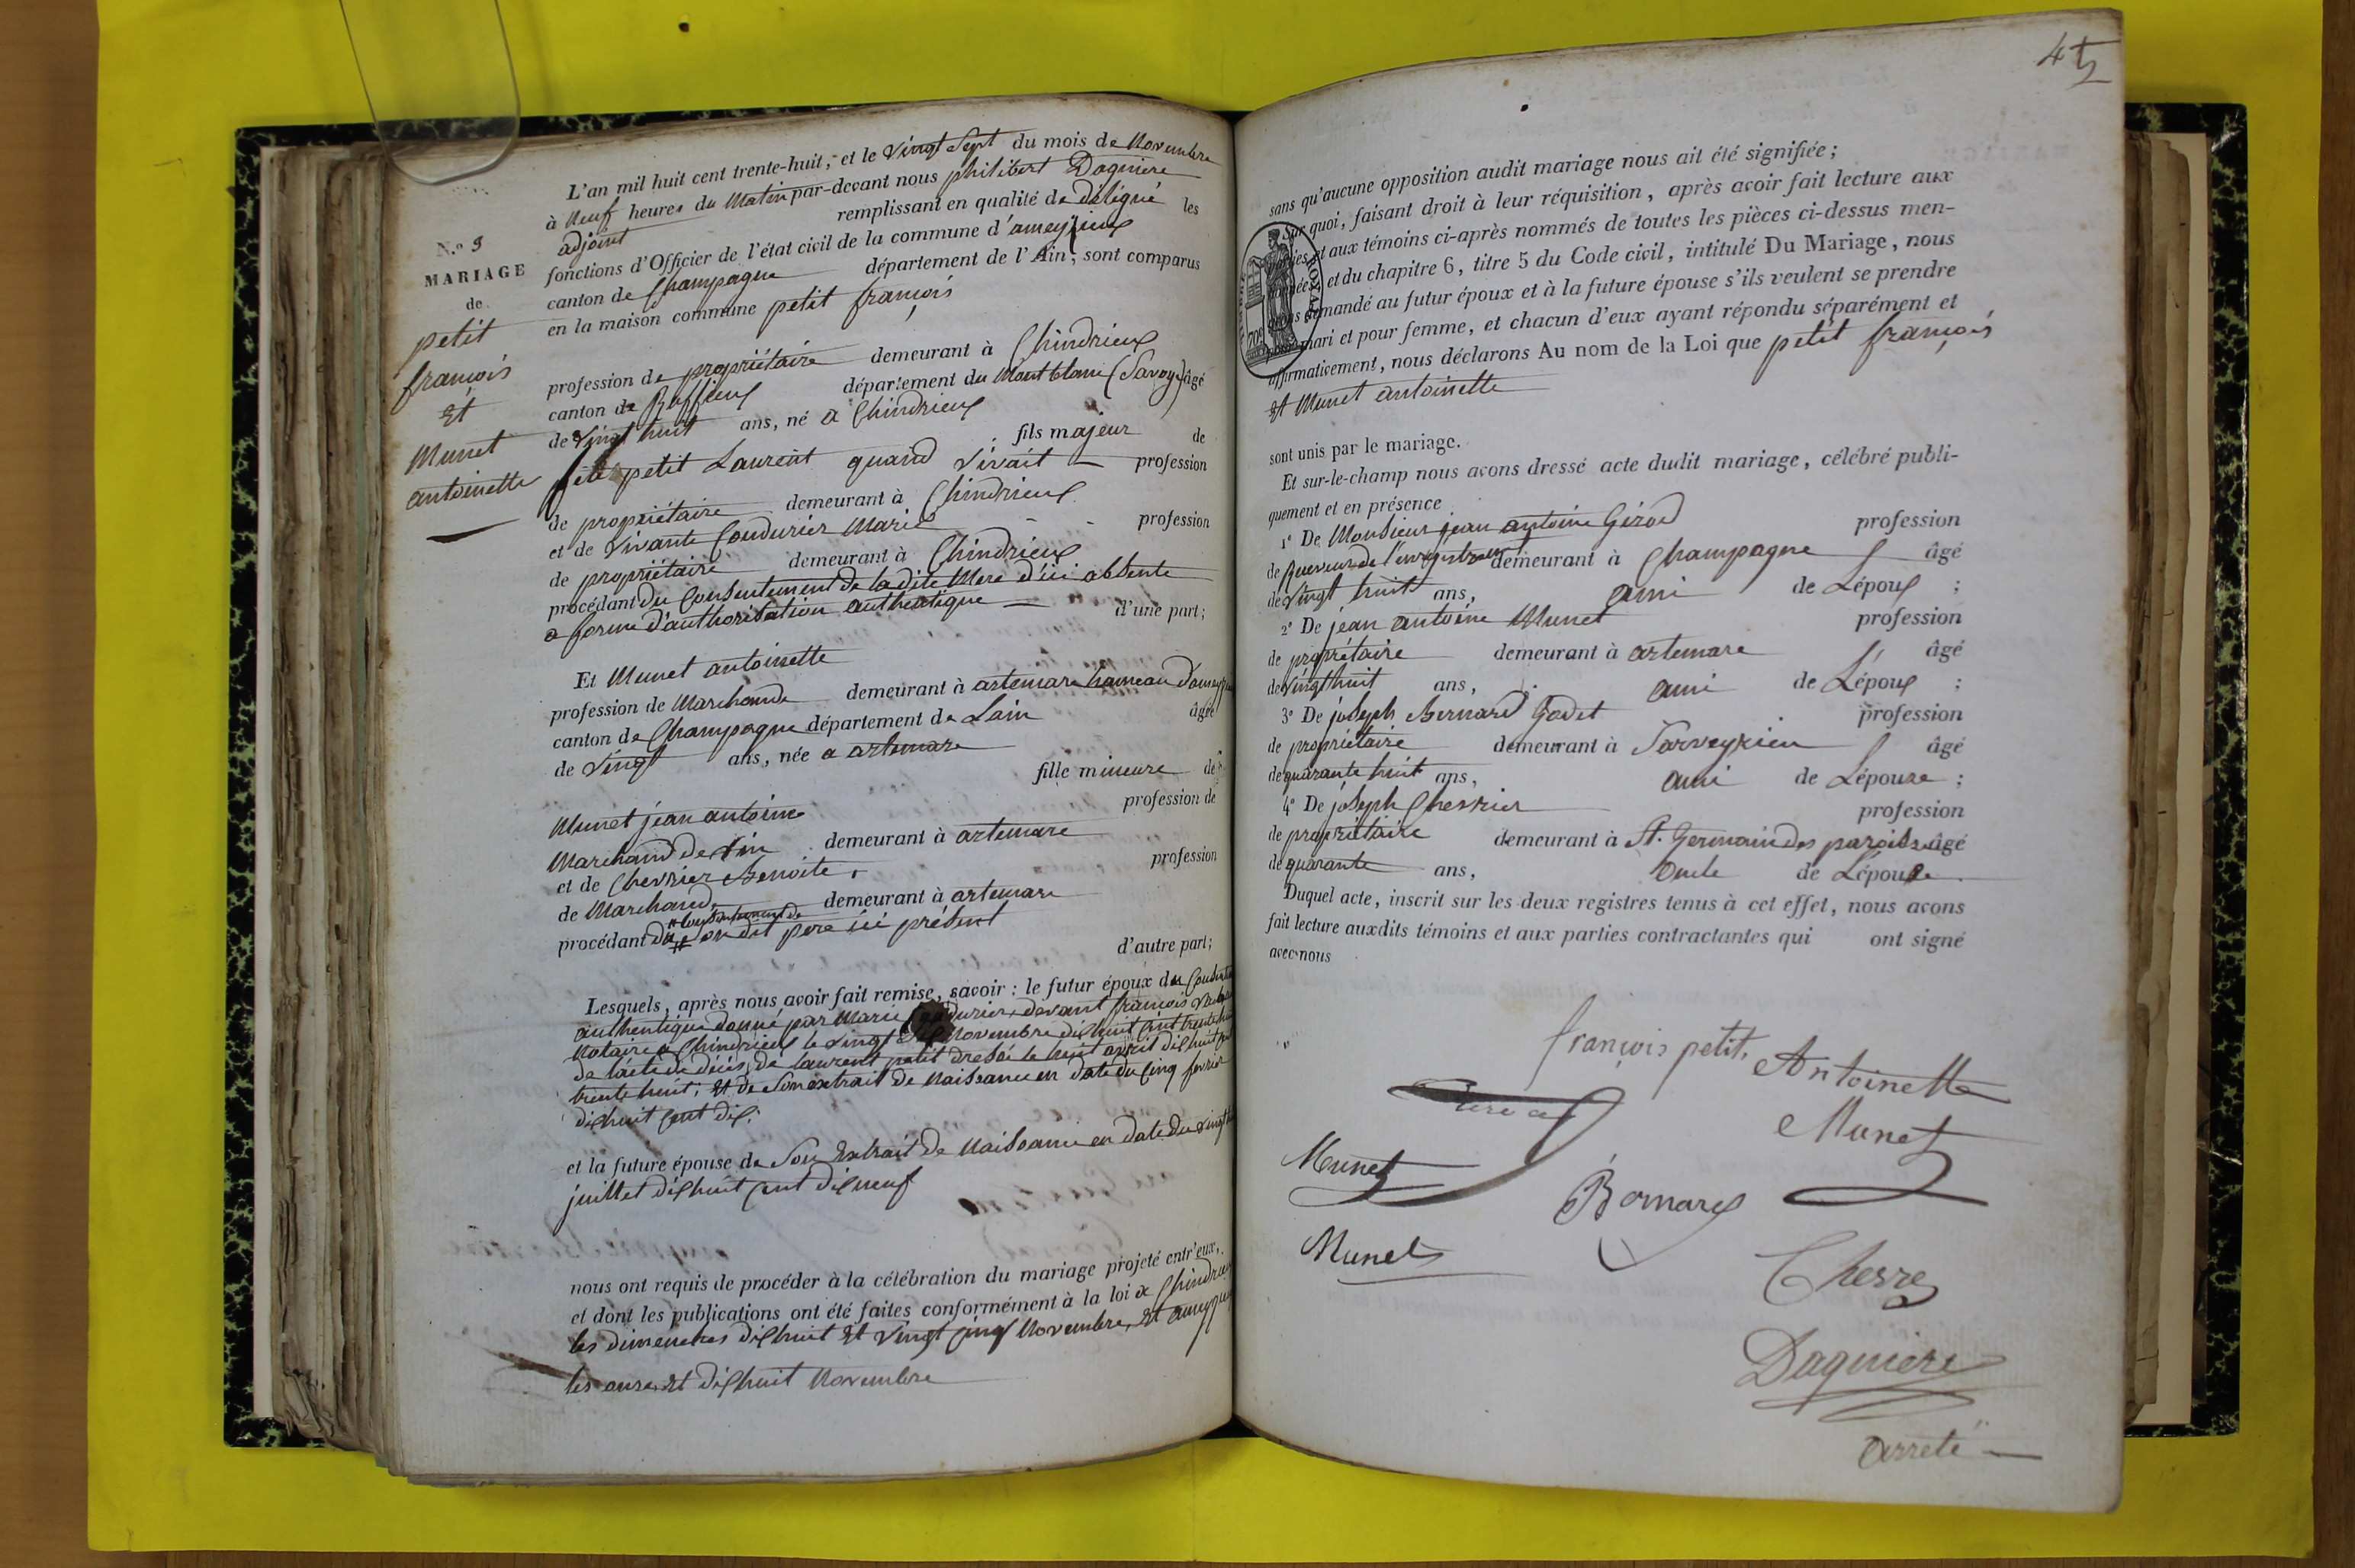 N.º 9
MARIAGE
de
petit
françois
Et
Munet
antoinette
L'an mil huit cent trente-huit, et le vingt Sept du mois de Novembre
à Neuf heures du Matin par-devant nous philibert Dagniere
adjoint remplissant en qualité de délégué les
fonctions d'Officier de l'état civil de la commune d'ameyzieux
canton de Champagne département de l'Ain, sont comparus
en la maison commune petit françois
profession de propriétaire demeurant à Chindrieux
canton de Ruffieux département du Mont blanc (Savoye) âgé
de vingt huit ans, né a Chindrieux
fils majeur de
feu petit Laurent quand vivait profession
de propriétaire demeurant à Chindrieux
et de vivante Coudurier Marie profession
de propriétaire demeurant à Chindrieux
procédant du Consentement de ladite Mere d'ici absente
a forme d'authorisation authentique d'une part;
Et Munet antoinette
profession de Marchande demeurant à artemare hameau d'ameyzieux
canton de Champagne département de Lain âgée
de vingt ans, née a artemare
fille mineure de
Munet jean antoine profession de
Marchand de vin demeurant à artemare
et de Chevrier Benoite, profession
de Marchande demeurant à artemare
# Consentement de
procédant du # Son dit pere ici présent
d'autre part;
Lesquels, après nous avoir fait remise, savoir: le futur époux du Consentement
authentique donné par Marie Coudurier, devant françois
Notaire a Chindrieux le vingt Novembre dix huit cent trente huit
de l'acte de décès de laurent petit dressé le huit avril dix huit cent
trente huit; Et de Son extrait de Naissance en date du Cinq fevrier
dix huit Cent dix.
et la future épouse de Son Extrait de Naissance en date du vingt
juillet dix huit Cent dix neuf
nous ont requis de procéder à la célébration du mariage projeté entr'eux,
et dont les publications ont été faites conformément à la loi a Chindrieux
les dimenches dix huit Et vingt Cinq Novembre, Et ameyzieux
les onze, Et dix huit Novembre
sans qu'aucune opposition audit mariage nous ait été signifiée;
Sur quoi, faisant droit à leur réquisition, après avoir fait lecture aux
parties et aux témoins ci-après nommés de toutes les pièces ci-dessus men-
tionnées et du chapitre 6, titre 5 du Code civil, intitulé Du Mariage, nous
avons demandé au futur époux et à la future épouse s'ils veulent se prendre
pour mari et pour femme, et chacun d'eux ayant répondu séparément et
affirmativement, nous déclarons Au nom de la Loi que petit françois
Et Munet antoinette
sont unis par le mariage.
Et sur-le-champ nous avons dressé acte dudit mariage, célébré publi-
quement et en présence
1º De Monsieur jean antoine Girod profession
de Receveur de l'enregistrement demeurant à Champagne âgé
de vingt huit ans, ami de Lépoux ;
2º De jean antoine Munet profession
de propriétaire demeurant à artemare âgé
de vingt huit ans, ami de Lépoux ;
3º De joseph Bernard Godet profession
de propriétaire demeurant à âgé
de quarante huit ans, ami de Lépouse ;
4º De joseph Chevrier profession
de propriétaire demeurant à St. Germain des paroisses âgé
de quarante ans, Oncle de Lépouse
Duquel acte, inscrit sur les deux registres tenus à cet effet, nous avons
fait lecture auxdits témoins et aux parties contractantes qui ont signé
avec nous
françois petit.
Antoinette
Munet
Munet
Munet
Dagniere
arreté